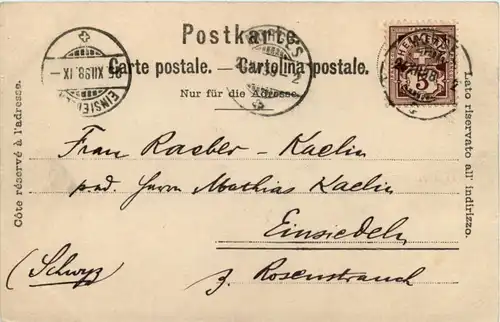 Postkarte.
Carte postale. — Cartolina postale.
Nur für die Adresse.
Côte réservé à l'adresse.
Lato riservato all' indirizzo.
EINSIEDELN
XII.98.IX
5
Frau Raeber - Kaelin
Herrn Mathias Kaelin
Einsiedeln
(Schwyz)
z. Rosenstrauch